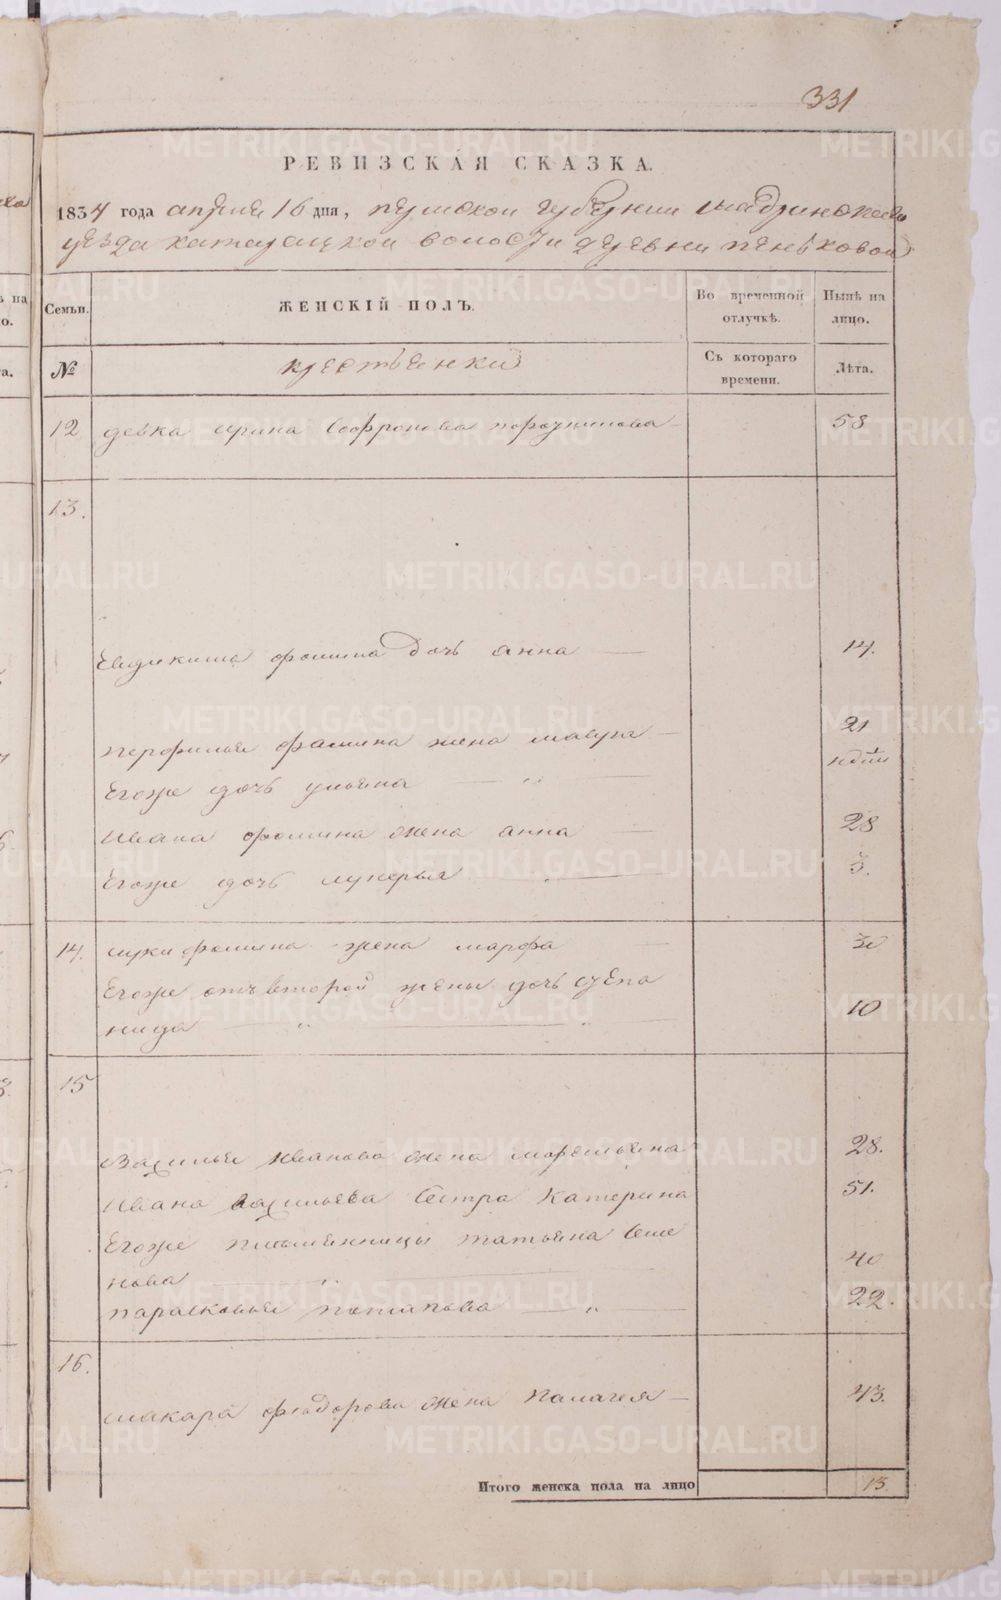 331
РЕВИЗСКАЯ СКАЗКА.
1834 года апреля 16 дня, пермской губернии шадринского
уезда катайской волости деревни пеньковой
Семьи. ЖЕНСКІЙ ПОЛЪ. Во временной отлучкѣ. Нынѣ на лицо.
№ крестьенки Съ котораго времени. Лѣта.
12 девка ирина Софронова 58
13.
фомина дочь анна 14.
перфилья фомина жена мавра 21
Егоже дочь ульяна ндѣли
Ивана фомина жена анна 28
Егоже дочь лукерья 3.
14. луки фомина жена марфа 30
Егоже отъ второй жены дочь степа
нида 10
15
Васильи Иванова жена 28.
Ивана васильева Сестра Катерина 51.
Егоже племянницы татьяна Семе
нова 40
парасковья потапова 22.
16.
макара фіодорова жена Палагея 43.
Итого женска пола на лицо 13
METRIKI.GASO-URAL.RU